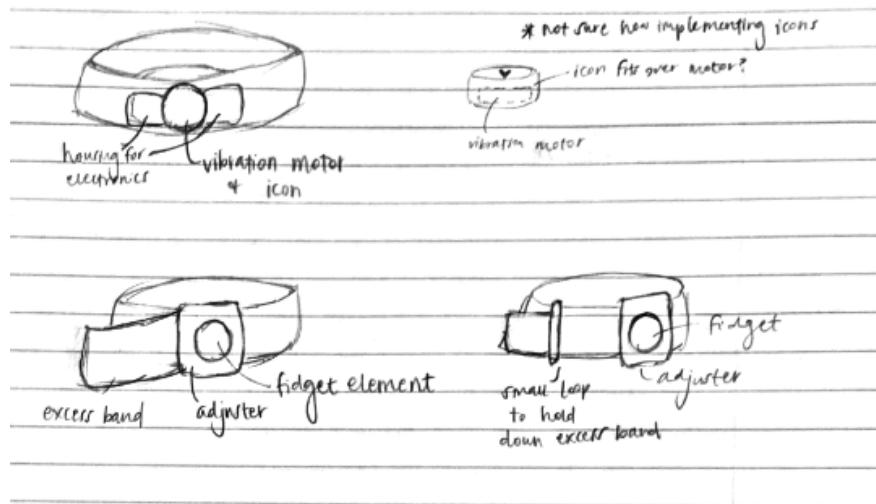 * not sure how implementing icons
icon fits over motor?
vibration motor
housing for
electronics
vibration motor
& icon
fidget element
excess band
adjuster
fidget
adjuster
small loop
to hold
down excess band